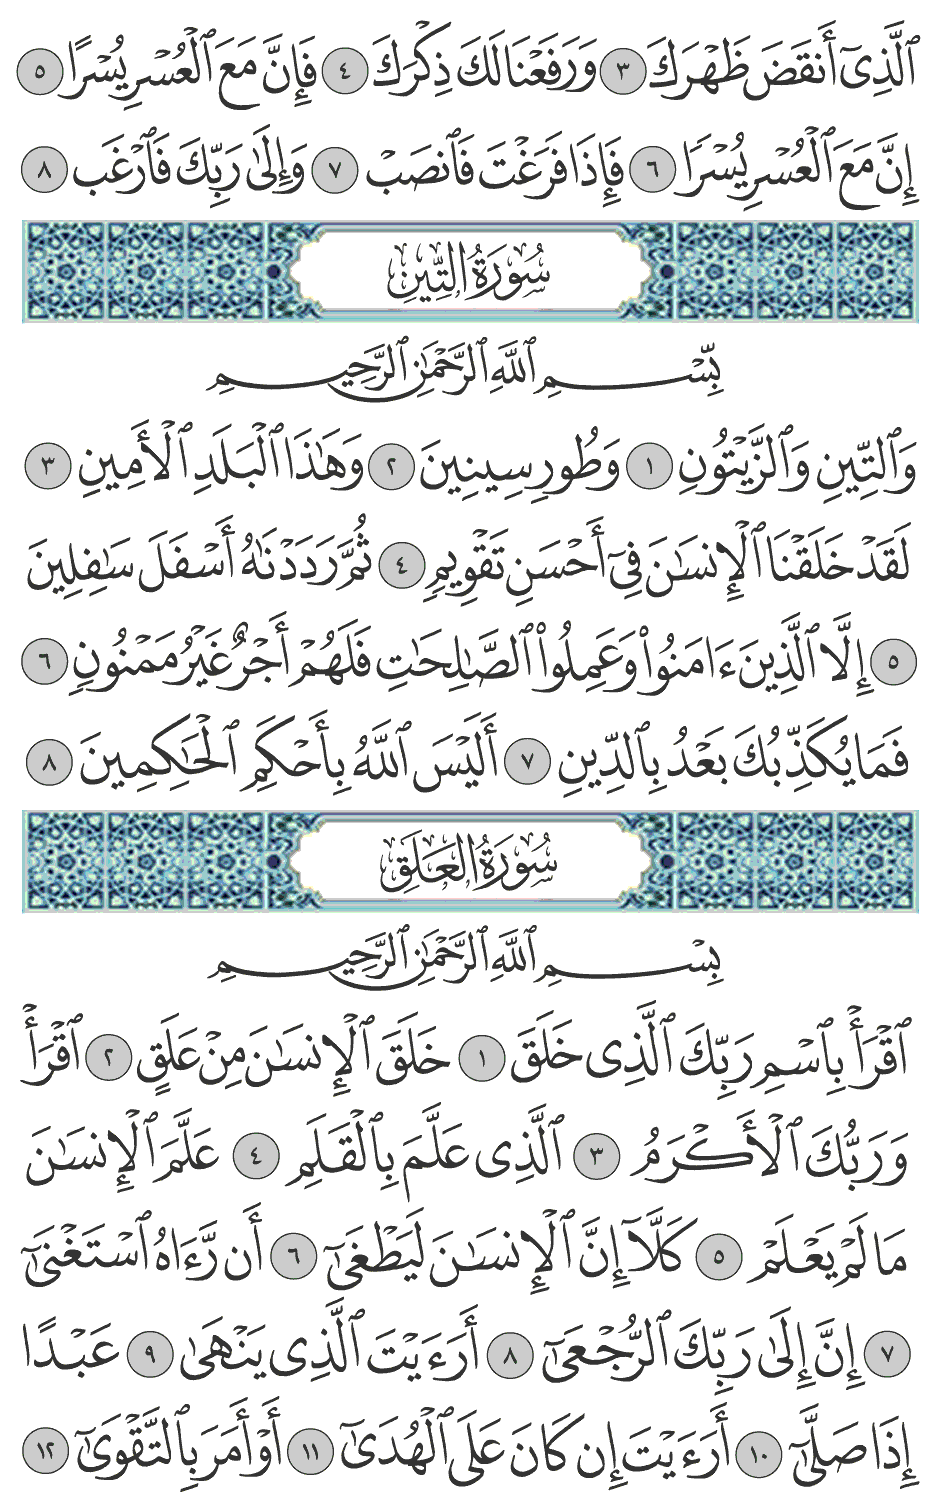 ٱلَّذِىٓ أَنقَضَ ظَهْرَكَ ٣ وَرَفَعْنَا لَكَ ذِكْرَكَ ٤ فَإِنَّ مَعَ ٱلْعُسْرِ يُسْرًا ٥
إِنَّ مَعَ ٱلْعُسْرِ يُسْرًا ٦ فَإِذَا فَرَغْتَ فَٱنصَبْ ٧ وَإِلَىٰ رَبِّكَ فَٱرْغَب ٨
سُورَةُ التِّينِ
بِّسْمِ ٱللَّهِ ٱلرَّحْمَٰنِ ٱلرَّحِيمِ
وَٱلتِّينِ وَٱلزَّيْتُونِ ١ وَطُورِ سِينِينَ ٢ وَهَٰذَا ٱلْبَلَدِ ٱلْأَمِينِ ٣
لَقَدْ خَلَقْنَا ٱلْإِنسَٰنَ فِىٓ أَحْسَنِ تَقْوِيمٍ ٤ ثُمَّ رَدَدْنَٰهُ أَسْفَلَ سَٰفِلِينَ
٥ إِلَّا ٱلَّذِينَ ءَامَنُوا۟ وَعَمِلُوا۟ ٱلصَّٰلِحَٰتِ فَلَهُمْ أَجْرٌ غَيْرُ مَمْنُونٍ ٦
فَمَا يُكَذِّبُكَ بَعْدُ بِٱلدِّينِ ٧ أَلَيْسَ ٱللَّهُ بِأَحْكَمِ ٱلْحَٰكِمِينَ ٨
سُورَةُ العَلَقِ
بِسْمِ ٱللَّهِ ٱلرَّحْمَٰنِ ٱلرَّحِيمِ
ٱقْرَأْ بِٱسْمِ رَبِّكَ ٱلَّذِى خَلَقَ ١ خَلَقَ ٱلْإِنسَٰنَ مِنْ عَلَقٍ ٢ ٱقْرَأْ
وَرَبُّكَ ٱلْأَكْرَمُ ٣ ٱلَّذِى عَلَّمَ بِٱلْقَلَمِ ٤ عَلَّمَ ٱلْإِنسَٰنَ
مَا لَمْ يَعْلَمْ ٥ كَلَّآ إِنَّ ٱلْإِنسَٰنَ لَيَطْغَىٰٓ ٦ أَن رَّءَاهُ ٱسْتَغْنَىٰٓ
٧ إِنَّ إِلَىٰ رَبِّكَ ٱلرُّجْعَىٰٓ ٨ أَرَءَيْتَ ٱلَّذِى يَنْهَىٰ ٩ عَبْدًا
إِذَا صَلَّىٰٓ ١٠ أَرَءَيْتَ إِن كَانَ عَلَى ٱلْهُدَىٰٓ ١١ أَوْ أَمَرَ بِٱلتَّقْوَىٰٓ ١٢